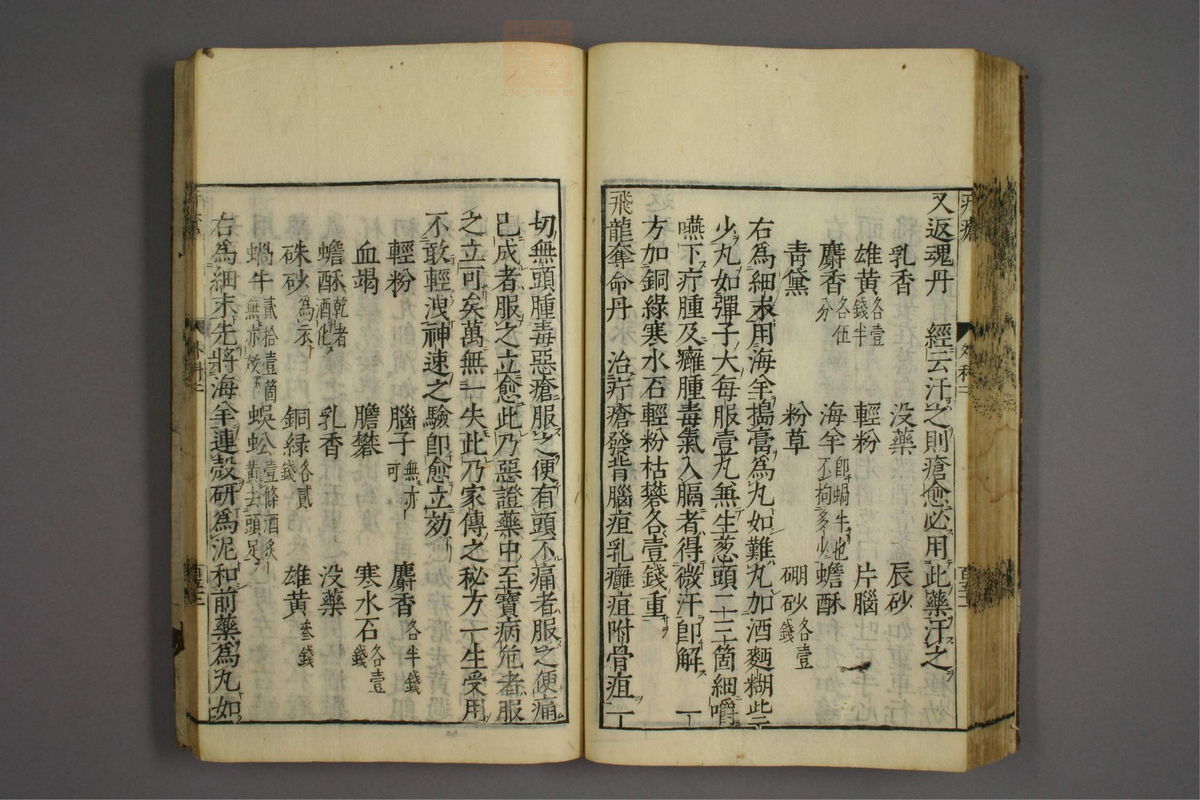 又返魂丹 經云汗之則瘡愈必用此藥汗之
乳香 没藥 辰砂
雄黄各壹錢半 輕粉 片腦
麝香各伍分 海羊即蝸牛也不拘多少 蟾酥
青黛 粉草 硼砂各壹錢
右爲細末用海羊搗膏爲丸如難丸加酒麪糊些
少丸如彈子大每服壹丸無生葱頭二三箇細嚼
嚥下疔腫及癰腫毒氣入膈者得微汗即解 一
方加銅綠寒水石輕粉枯礬各壹錢重
飛龍奪命丹 治疔瘡發背腦疽乳癰疽附骨疽一
切無頭腫毒惡瘡服之便有頭不痛者服之便痛
已成者服之立愈此乃惡證藥中至寶病危者服
之立可矣萬無一失此乃家傳之秘方一生受用
不敢輕洩神速之驗即愈立効
輕粉 腦子無亦可 麝香各半錢
血竭 膽礬 寒水石各壹錢
蟾酥乾者酒化 乳香 没藥
硃砂爲衣 銅綠各貳錢 雄黄叁錢
蝸牛貳拾壹箇無亦 蜈蚣壹條酒炙去頭足
右爲細末先將海羊連殼研爲泥和前藥爲丸如